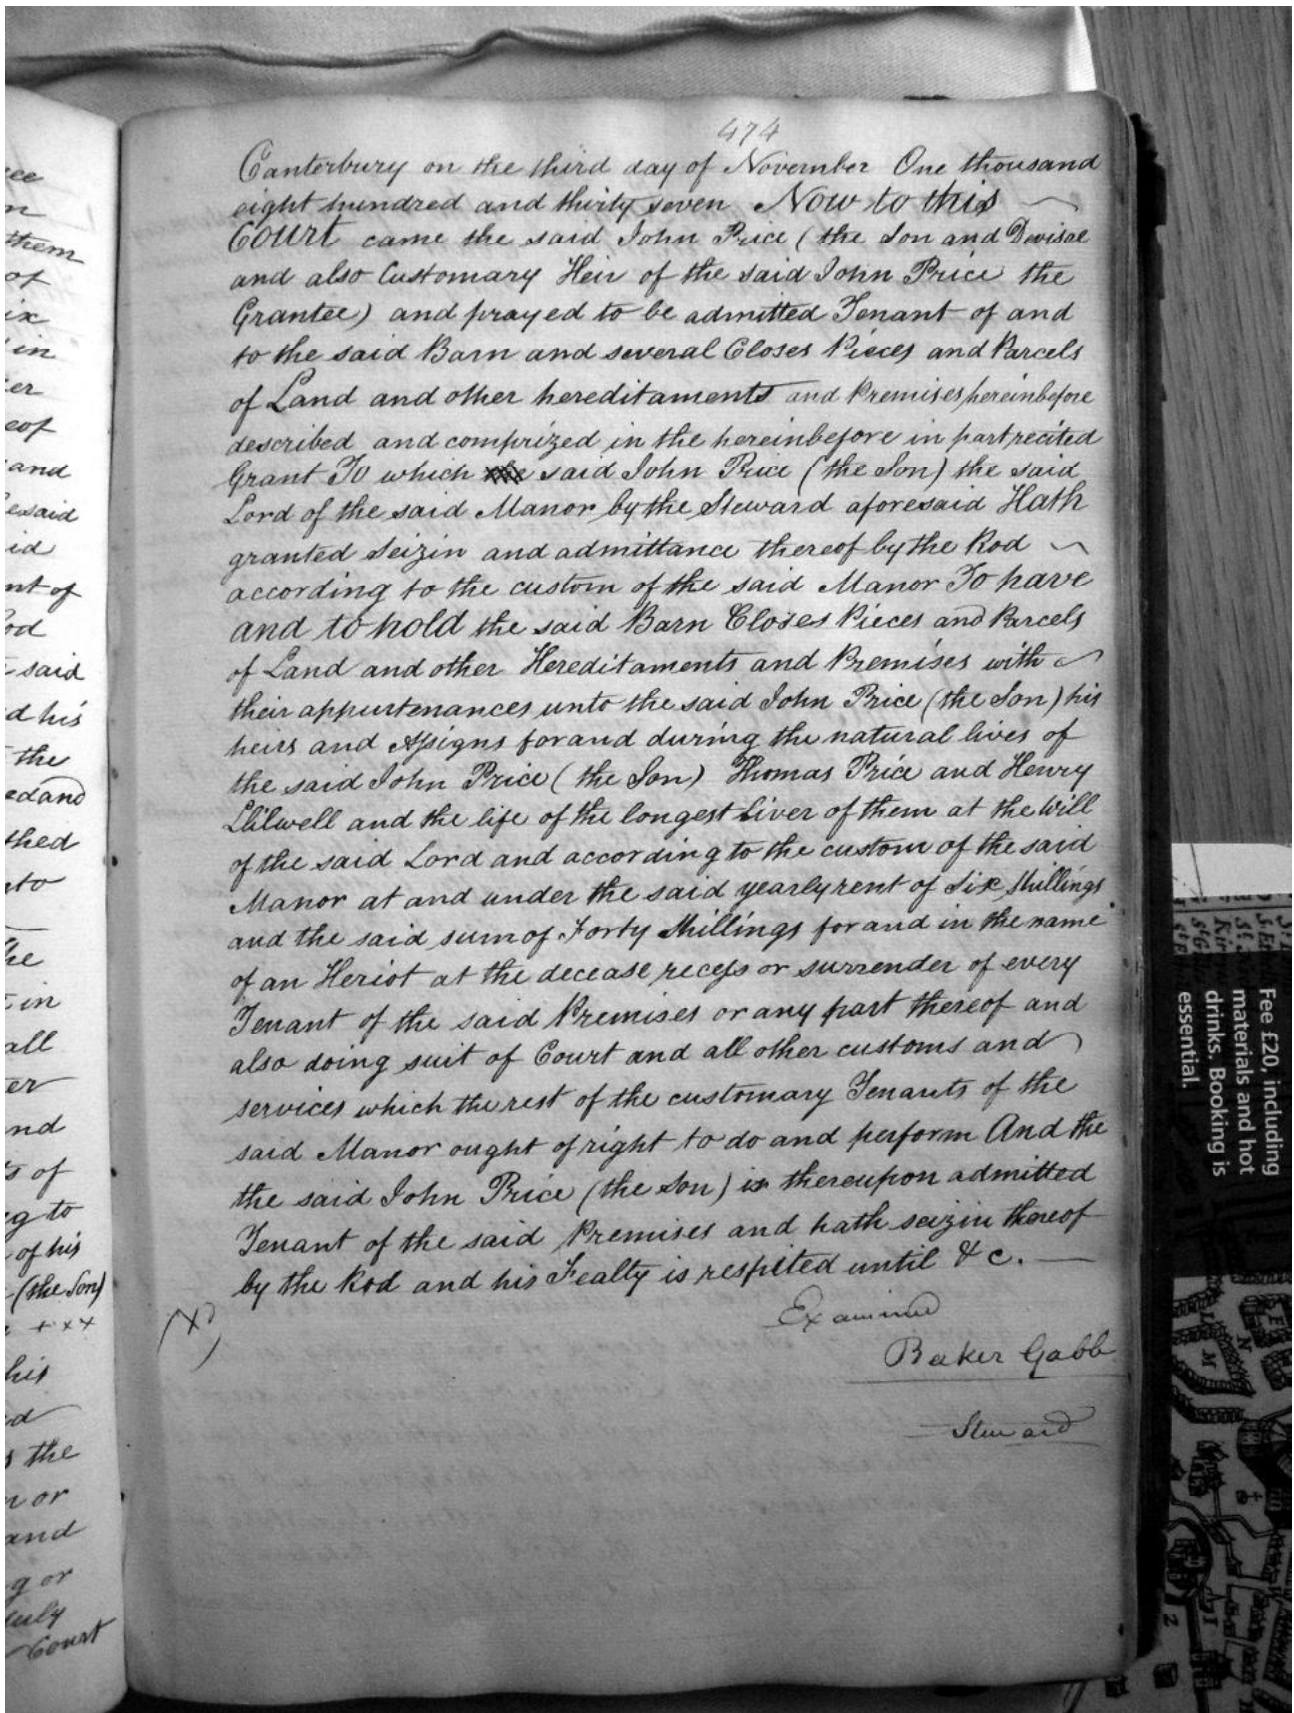 474
Canterbury on the third day of November One thousand
eight hundred and thirty seven Now to this
Court came the said John Price (the Son and Devisee
and also Customary Heir of the said John Price the
Grantee) and prayed to be admitted Tenant of and
to the said Barn and several Closes Pieces and Parcels
of Land and other hereditaments and Premises hereinbefore
described and comprized in the hereinbefore in part recited
Grant To which the said John Price (the Son) the said
Lord of the said Manor by the Steward aforesaid Hath
granted Seizin and admittance thereof by the Rod
according to the custom of the said Manor To have
and to hold the said Barn Closes Pieces and Parcels
of Land and other Hereditaments and Premises with
their appurtenances unto the said John Price (the Son) his
heirs and Assigns for and during the natural lives of
the said John Price (the Son) Thomas Price and Henry
and the life of the longest Liver of them at the Will
of the said Lord and according to the custom of the said
Manor at and under the said yearly rent of Six Shillings
and the said sum of Forty Shillings for and in the name
of an Heriot at the decease recess or surrender of every
Tenant of the said Premises or any part thereof and
also doing suit of Court and all other customs and
services which the rest of the customary Tenants of the
said Manor ought of right to do and perform And the
the said John Price (the Son) is thereupon admitted
Tenant of the said Premises and hath seizin thereof
by the Rod and his Fealty is respited until &c.
Examined
Baker Gabb
Steward
them
of
in
er
eof
and
esaid
id
nt of
said
d his
the
ed and
thed
nto
in
all
er
nd
s of
g to
of his
(the Son)
+ x x
his
the
or
and
g or
Court
Fee £20, including
materials and hot
drinks. Booking is
essential.